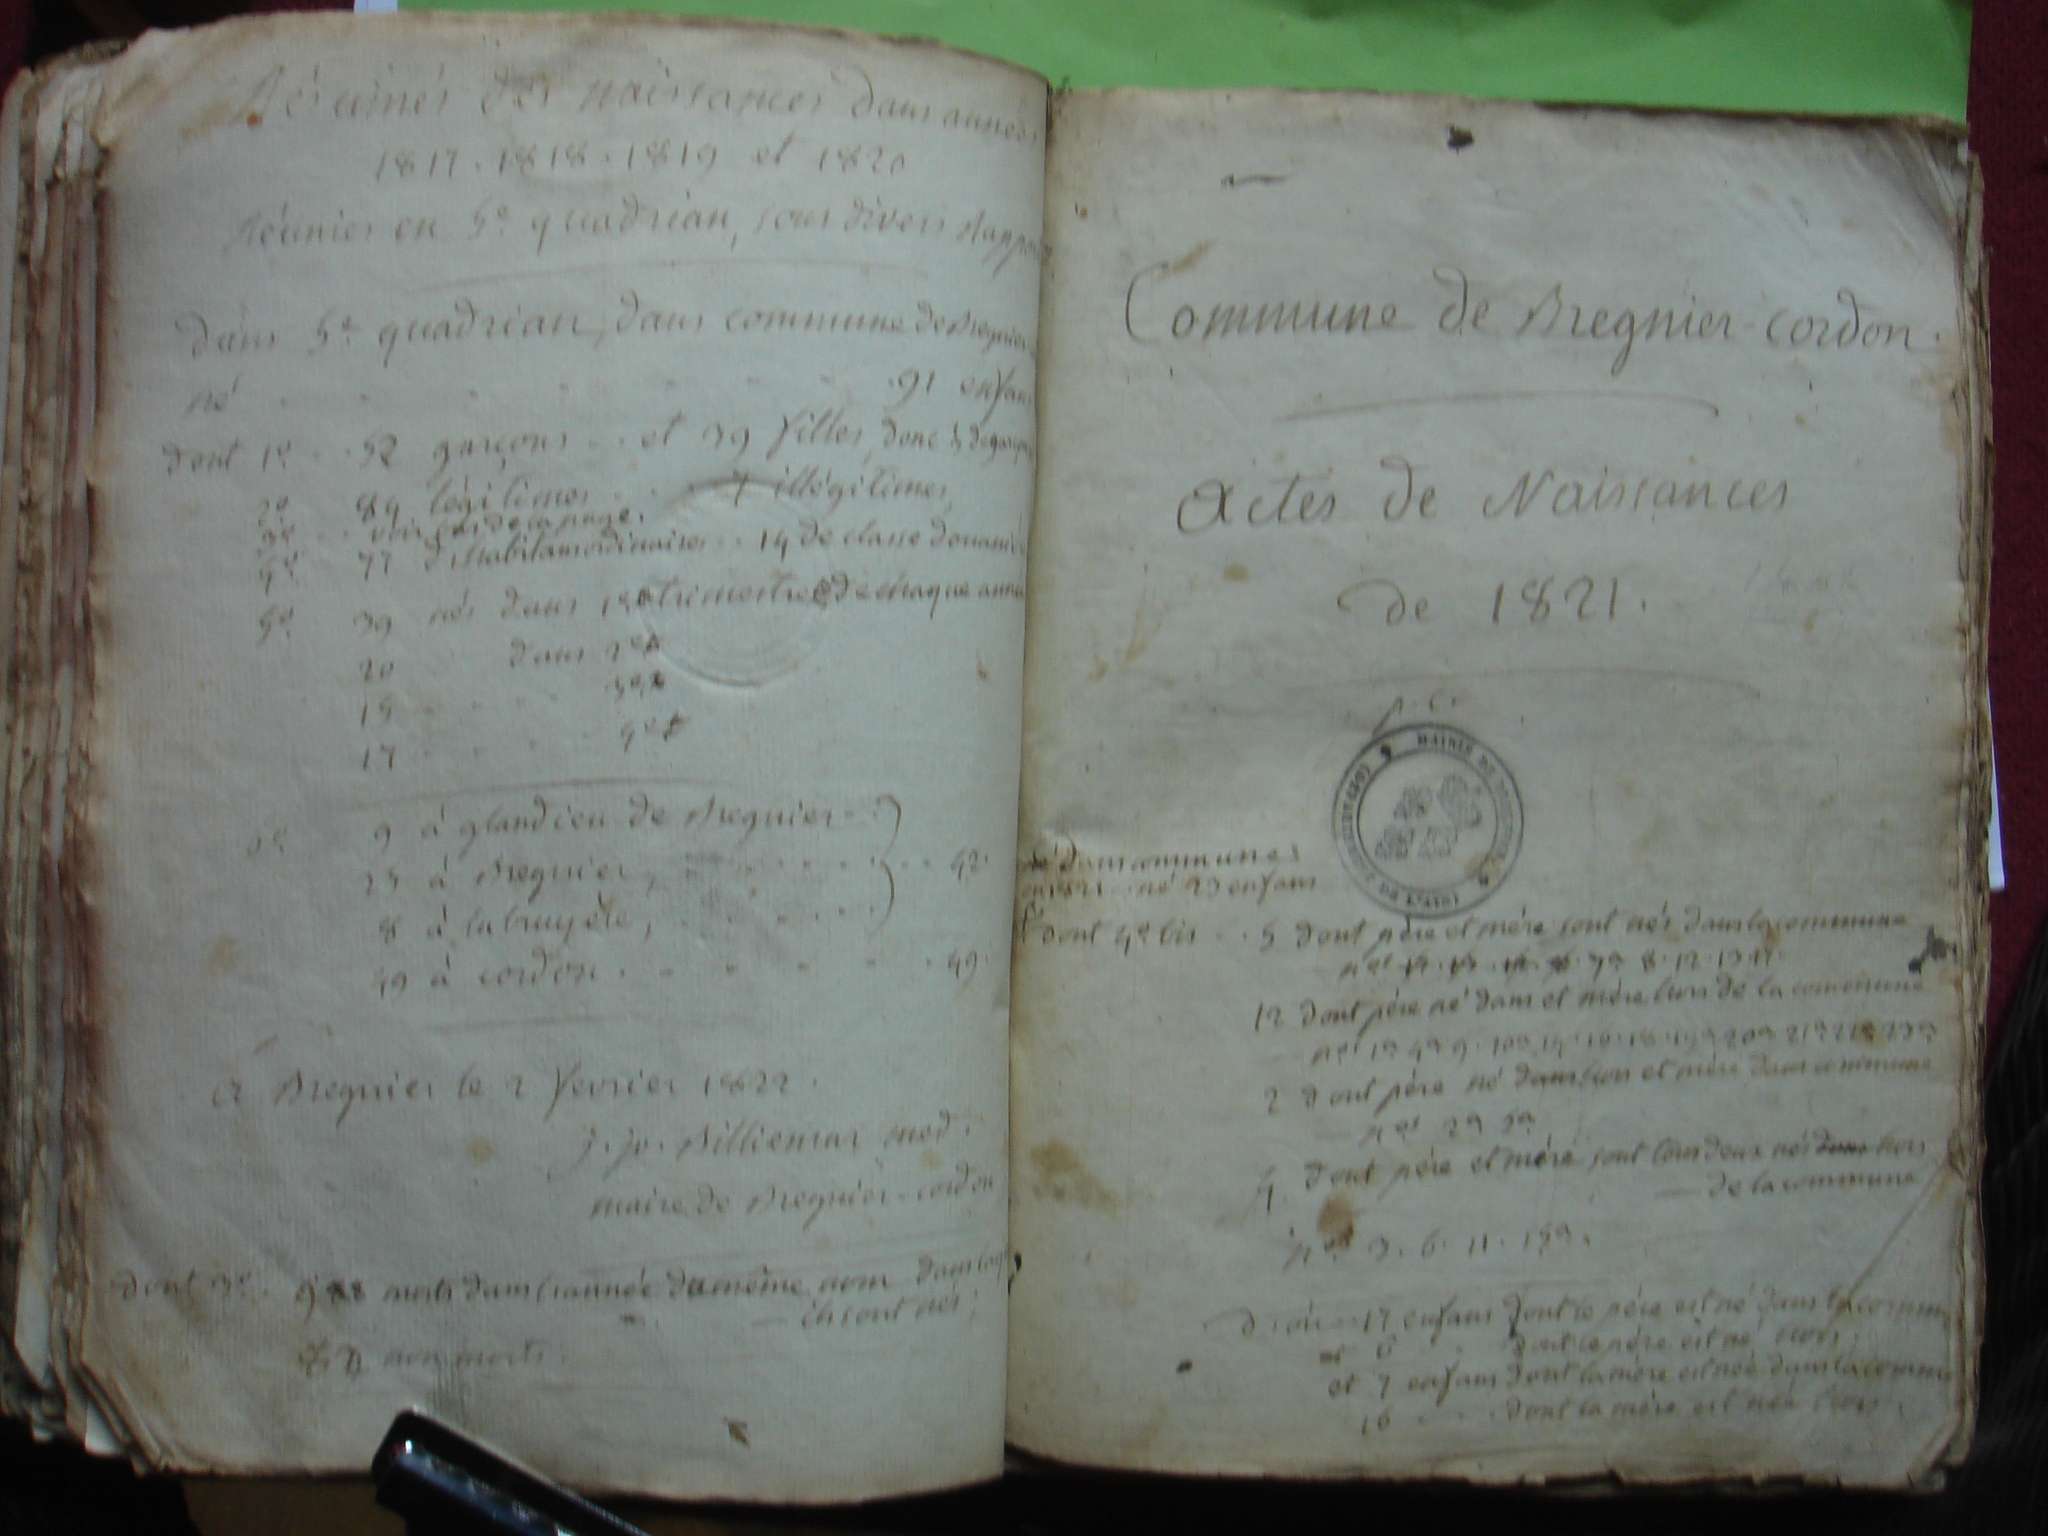 Résumés des naissances dans années
1817 . 1818 . 1819 et 1820
réunies en 5e quadrian, sous divers Rapports
dans 5e quadrian, dans commune de Bregnier
né . . . . . . 91 enfans
dont 1o . . 52 garçons . . et 39 filles, donc
2o 84 légitimes . . . 7 illégitimes
3o . . voir bas de la page.
4o 77 d'habitans ordinaires . . 14 de classe douanière
5o 39 nés dans 1er trimestre de chaque année
20 dans 2e
15 . . . 3e
17 . . . 4e
6o 9 à glandieu de Bregnier . .
25 à Bregnier, . . . . . . 42.
8 à la bruyère, . . . .
49 à cordon . . . . . . 49.
à Bregnier le 2 février 1822.
j. jo. Billiemaz med.
maire de Bregnier-cordon
dont 3o . morts dans l'année du même nom dans laq
ils sont nés ;
non morts.
Commune de Bregnier-cordon.
Actes de Naissances
de 1821.
MAIRIE DE
né dans commune
né 23 enfans
dont 4o bis . . 5 dont père et mère sont nés dans la commune
8 . 12 . 13 . 17 .
12 dont père né dans et mère hors de la commune
2 dont père né hors et mère dans commune
4 dont père et mère sont tous deux nés hors
de la commune
nos 3 . 6 . 11 .
d'où 17 enfans dont le père est né dans la commune
6 . . dont le père est né hors.
et 7 enfans dont la mère est née dans la commune
16 . . . dont la mère est née hors.